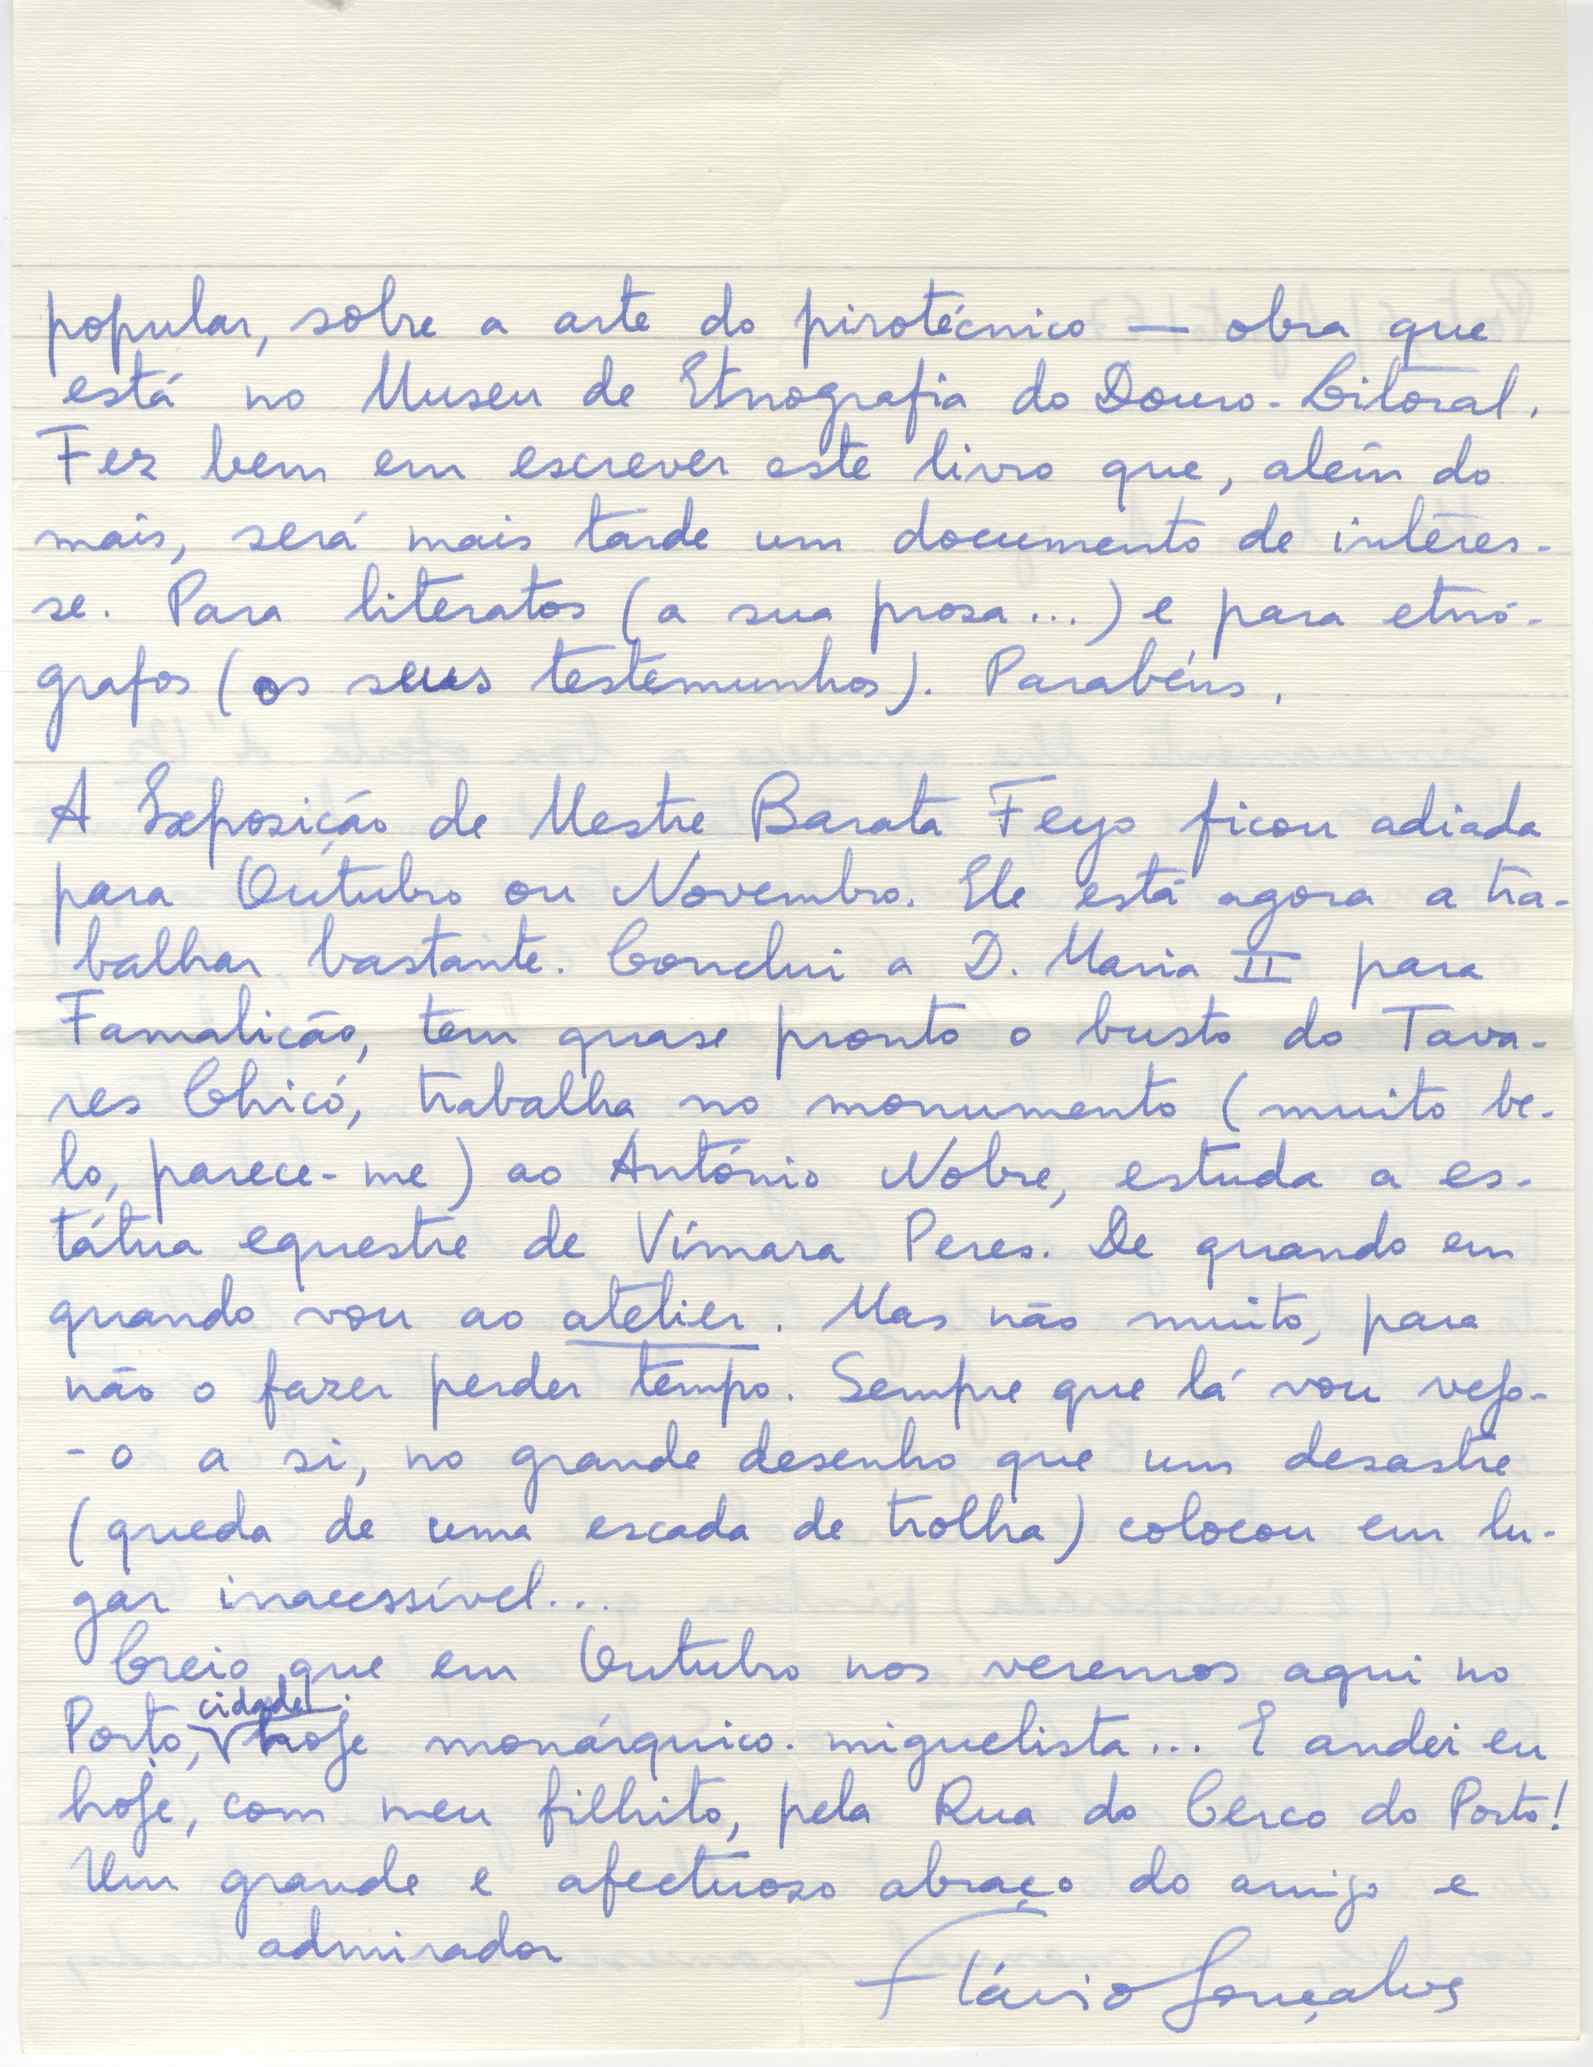 popular, sobre a arte do pirotécnico — obra que
está no Museu de Etnografia do Douro-Litoral.
Fez bem em escrever este livro que, além do
mais, será mais tarde um documento de interes-
se. Para literatos (a sua prosa...) e para etnó-
grafos (os seus testemunhos). Parabéns.
A Exposição de Mestre Barata Feyo ficou adiada
para Outubro ou Novembro. Ele está agora a tra-
balhar bastante. Conclui a D. Maria II para
Famalicão, tem quase pronto o busto do Tava-
res Chicó, trabalha no monumento (muito be-
lo, parece-me) ao António Nobre, estuda a es-
tátua equestre de Vímara Peres. De quando em
quando vou ao atelier. Mas não muito, para
não o fazer perder tempo. Sempre que lá vou vejo-
-o a si, no grande desenho que um desastre
(queda de uma escada de trolha) colocou em lu-
gar inacessível...
Creio que em Outubro nos veremos aqui no
Porto, cidade hoje monárquico-miguelista... E andei eu
hoje, com meu filhito, pela Rua do Cerco do Porto!
Um grande e afectuoso abraço do amigo e
admirador
Flávio Gonçalves